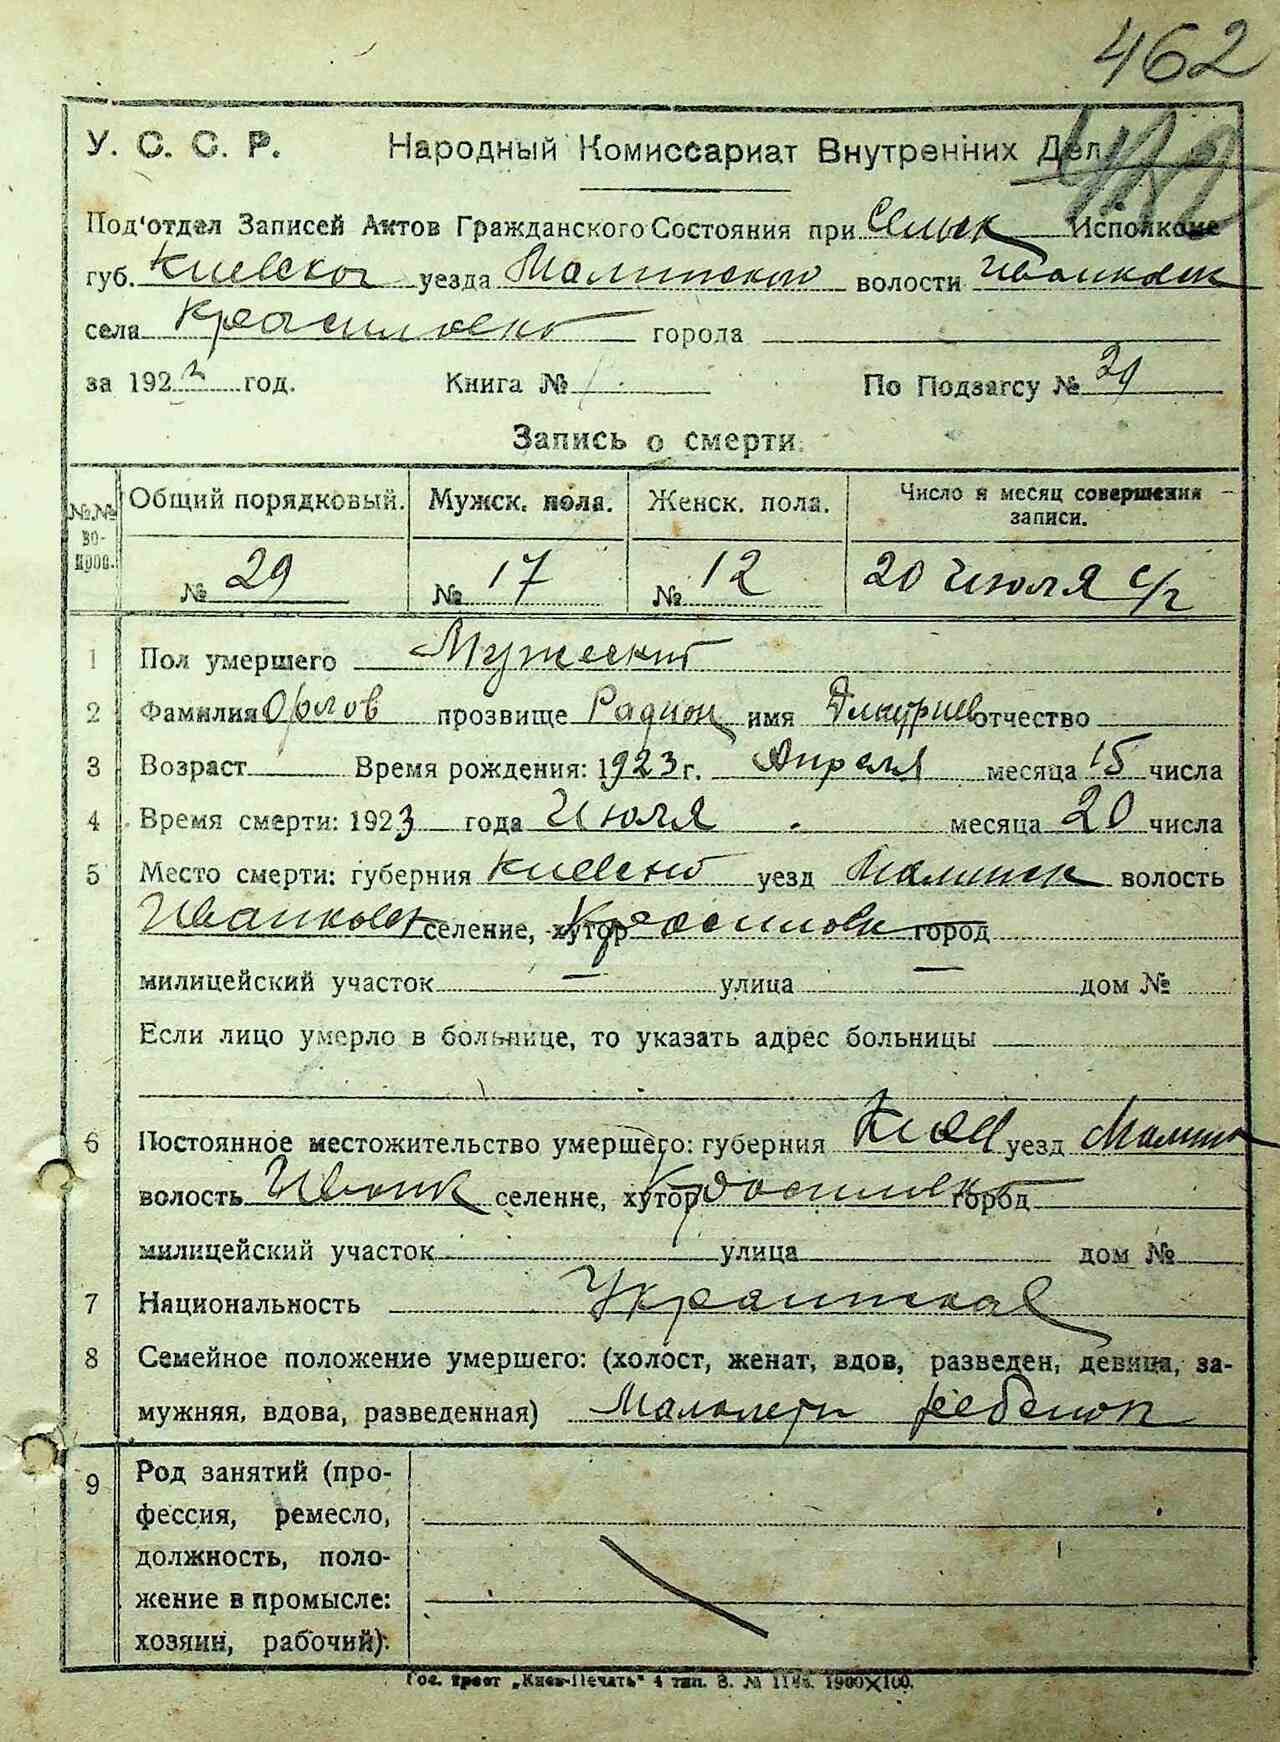 462
У. С. С. Р. Народный Комиссариат Внутренних Дел
Под'отдел Записей Актов Гражданского Состояния при Сельск Исполкоме
губ. Киевской уезда Малинского волости Иванковск
села Красиловка города
за 1923 год. Книга № По Подзагсу № 29
Запись о смерти.
№№ вопроов. Общий порядковый. Мужск. пола. Женск. пола. Число и месяц совершения записи.
№ 29 № 17 № 12 20 Июля с/г
1 Пол умершего Мужеский
2 Фамилия Орлов прозвище Радион имя Дмитриев отчество
3 Возраст Время рождения: 1923 г. Апреля месяца 15 числа
4 Время смерти: 1923 года Июля месяца 20 числа
5 Место смерти: губерния Киевской уезд Малинск волость
Иванковск селение, хутор Красиловк город
милицейский участок — улица — дом №
Если лицо умерло в больнице, то указать адрес больницы
6 Постоянное местожительство умершего: губерния Киев уезд Малинск
волость Иванк селение, хутор Красиловка город
милицейский участок улица дом №
7 Национальность Украинская
8 Семейное положение умершего: (холост, женат, вдов, разведен, девица, за-
мужняя, вдова, разведенная) Малолетн ребенок
9 Род занятий (про-
фессия, ремесло,
должность, поло-
жение в промысле:
хозяин, рабочий).
Гос. трест „Киев-Печать" 4 тип. З. № 1900×100.